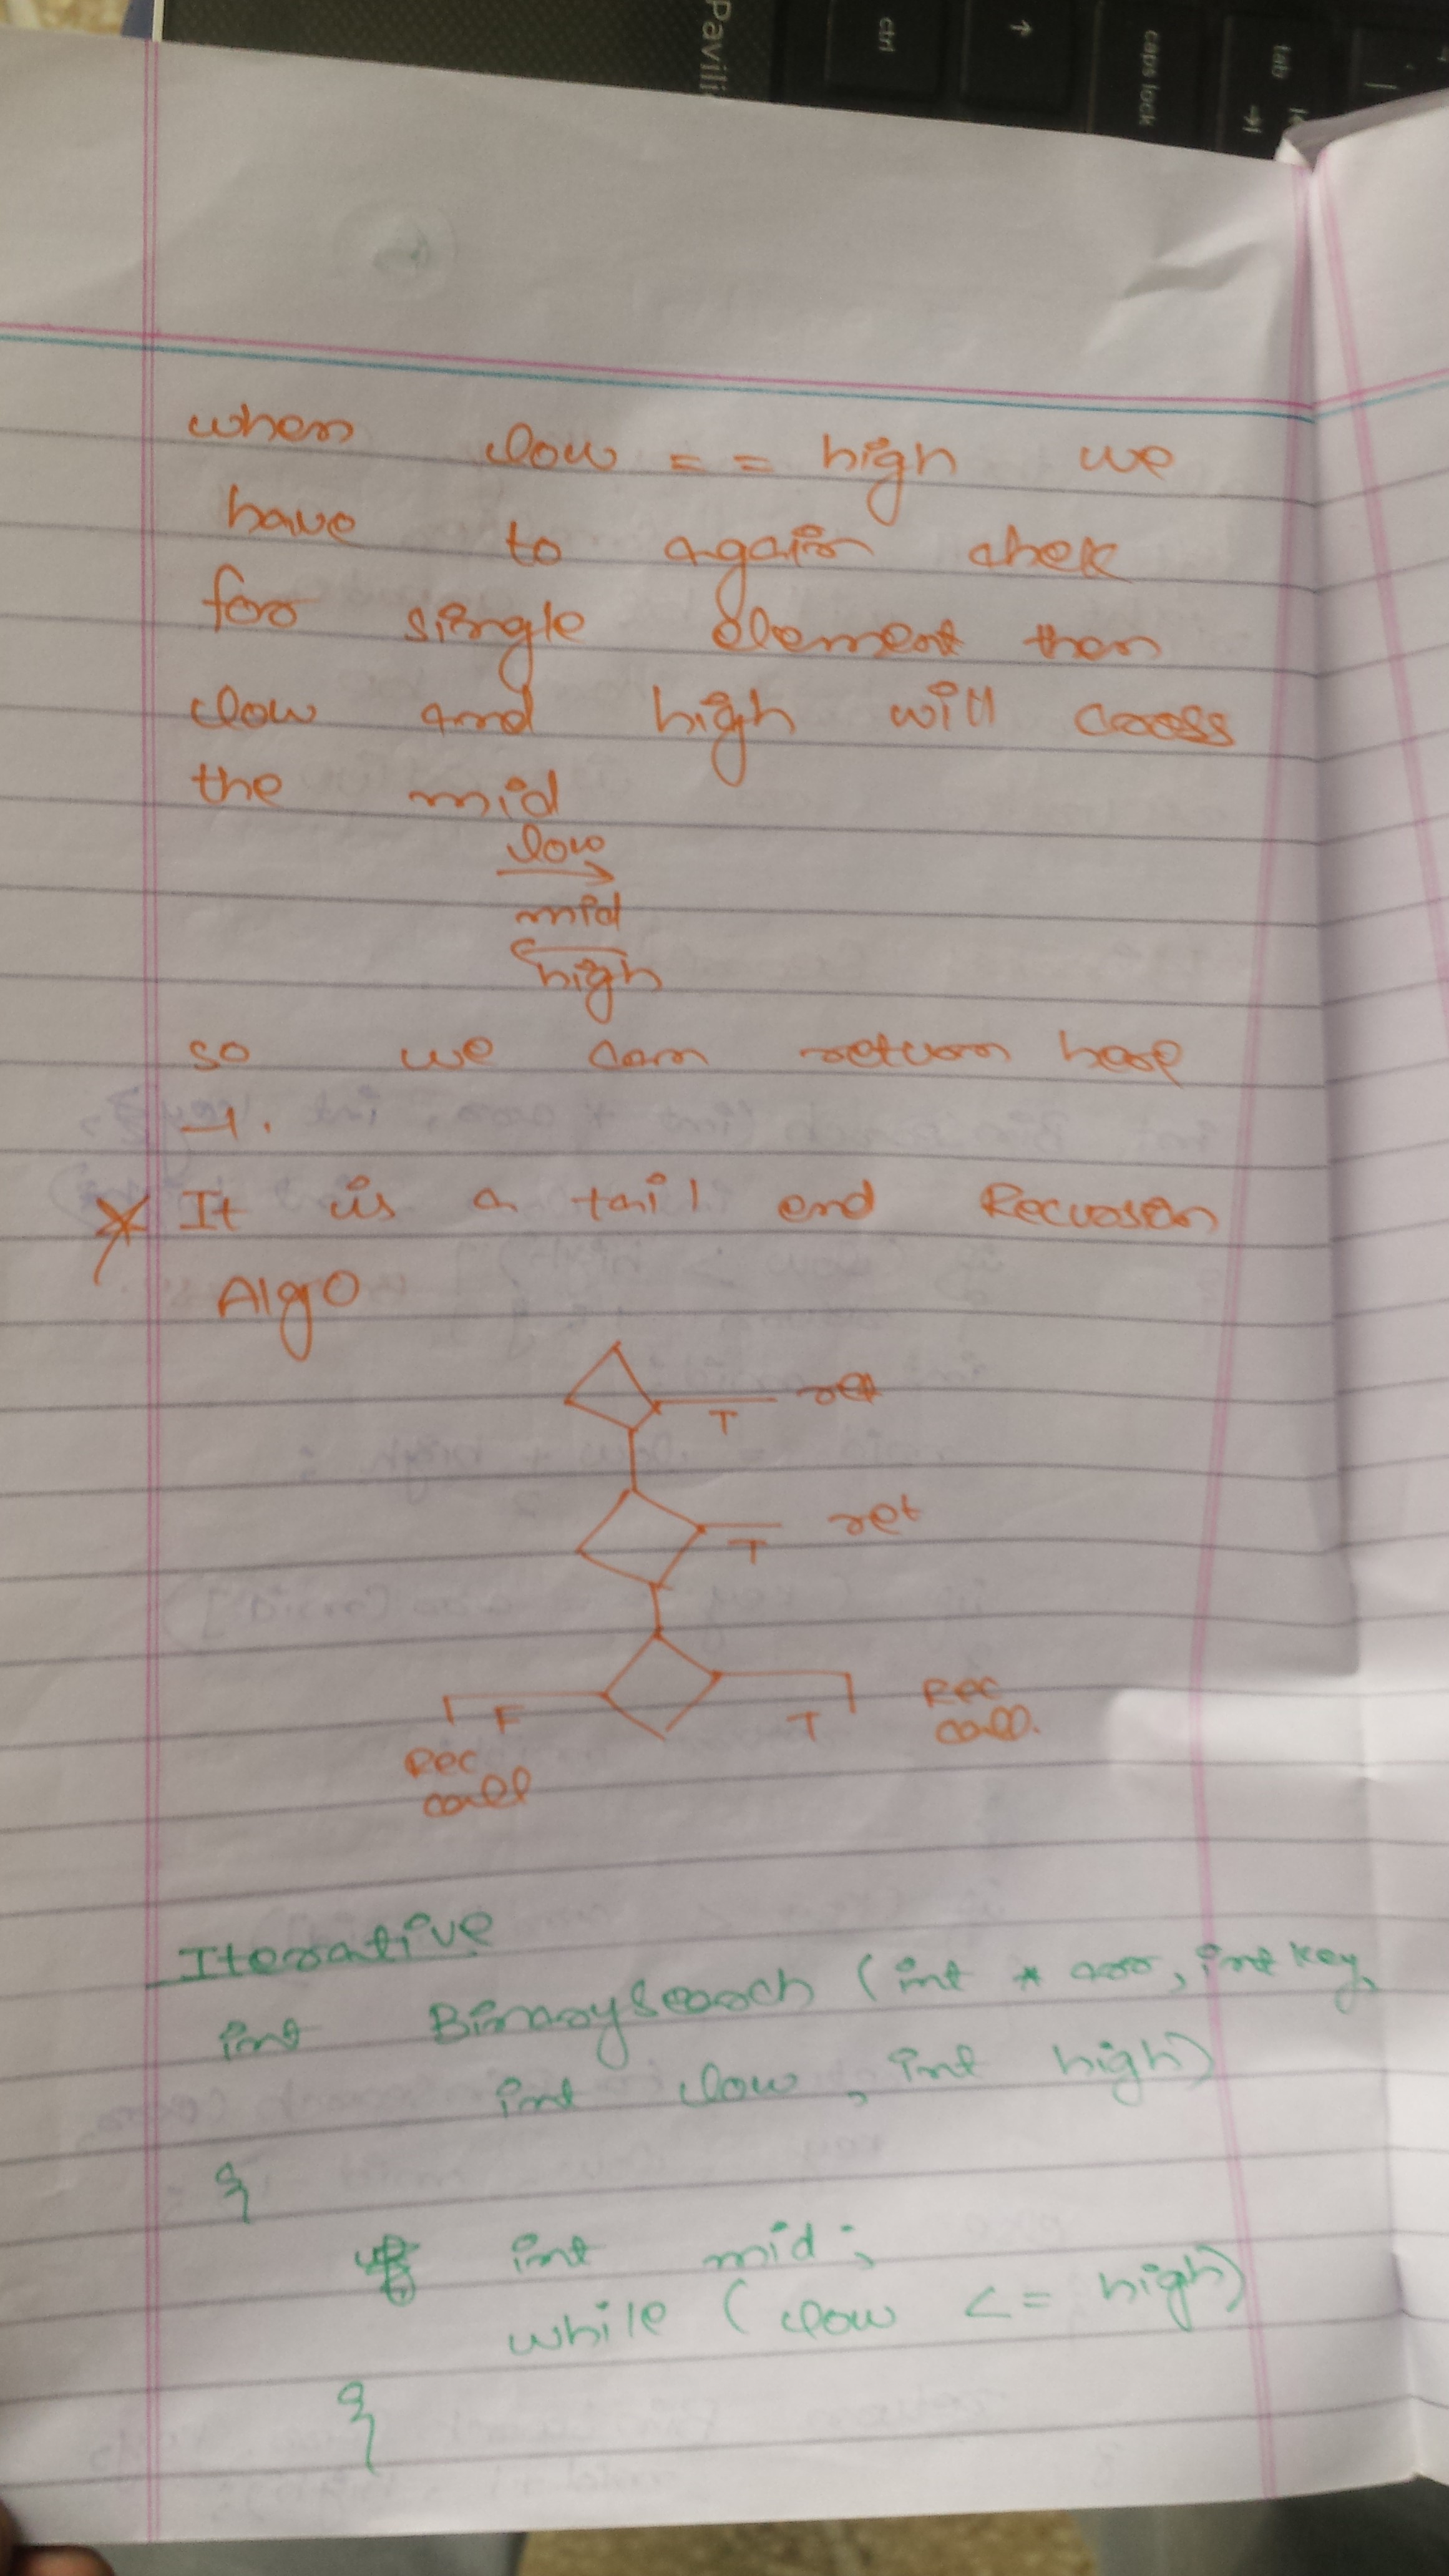 Pavili
ctrl
caps lock
tab
when low == high we
have to again chek
for single element then
low and high will cross
the mid
low
mid
high
so we can return here
-1.
It is a tail end Recursion
Algo
T ret
T ret
F T
Rec
call.
Rec
call
Iterative
int BinarySearch (int * arr, int key,
int low, int high)
{
int mid;
while (low <= high)
{